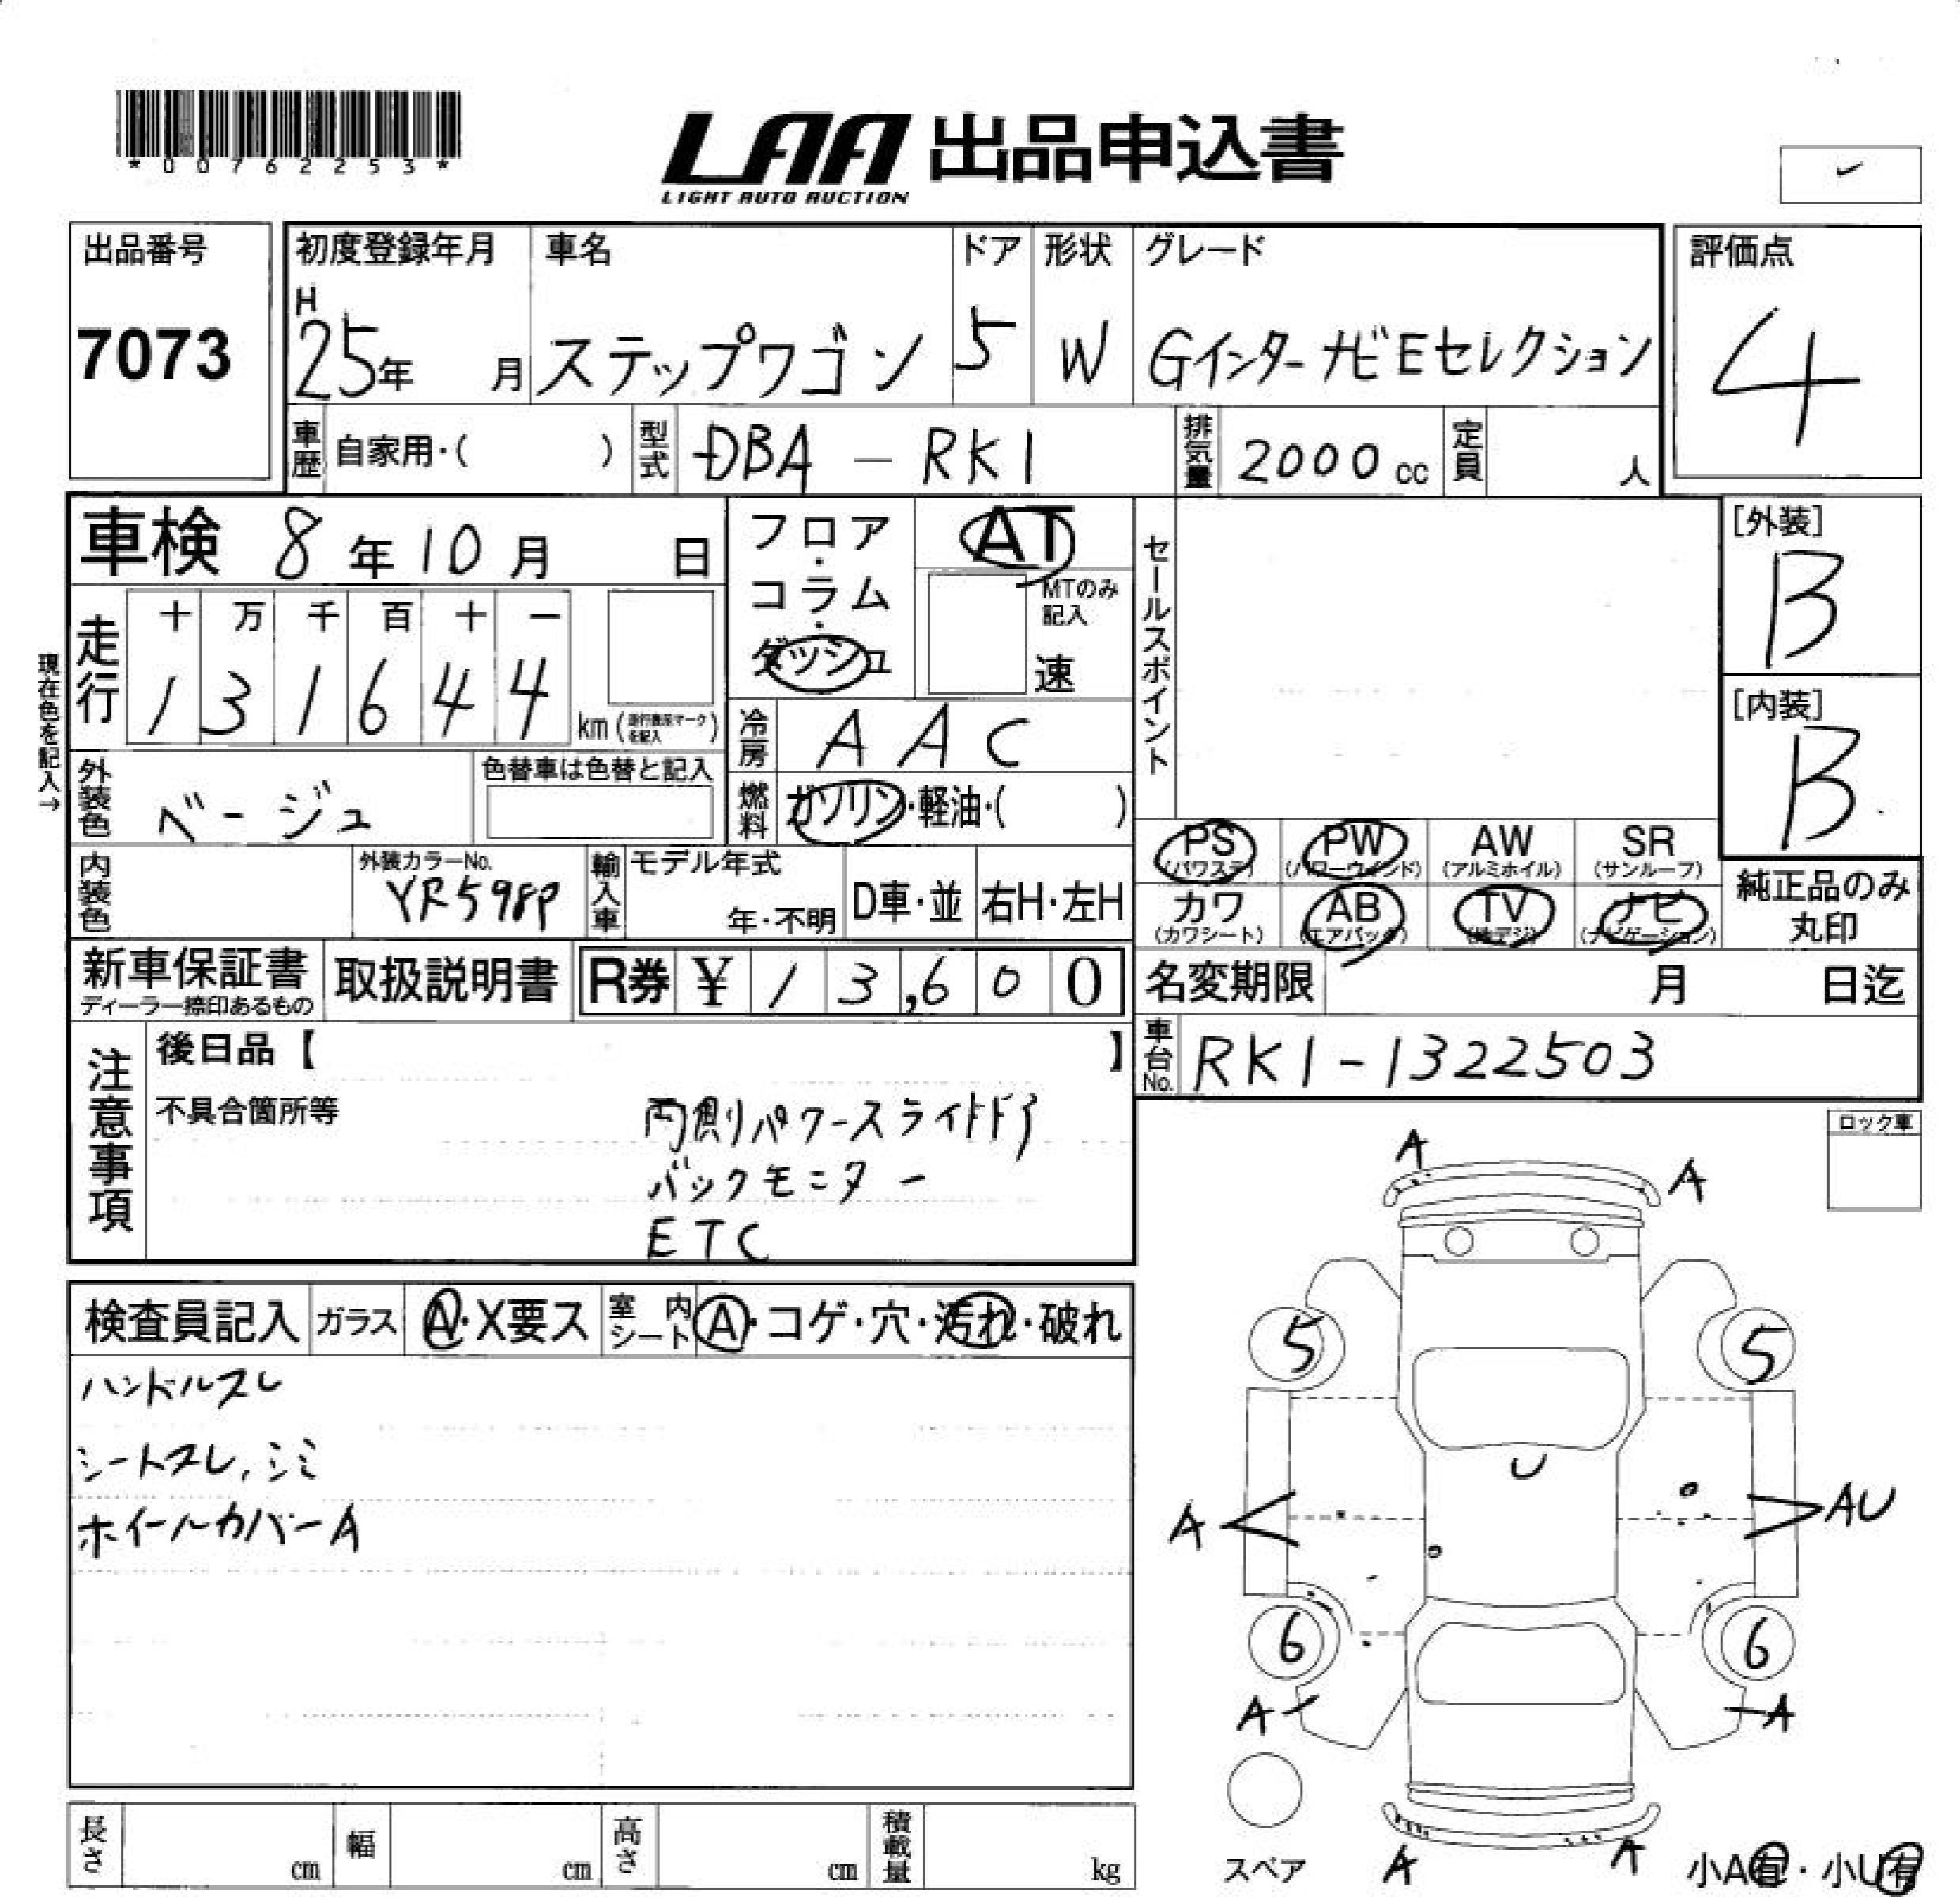 *00762253*
LAA 出品申込書
LIGHT AUTO AUCTION
出品番号
7073
初度登録年月
H
25年 月
車名
ステップワゴン
ドア
5
形状
W
グレード
GインターナビEセレクション
評価点
4
車歴 自家用・( )
型式 DBA - RK1
排気量 2000 cc
定員 人
車検 8年10月 日
フロア・コラム・ダッシュ
AT
MTのみ記入
速
セールスポイント
[外装]
B
[内装]
B
現在色を記入→
走行
十 万 千 百 十 一
1 3 1 6 4 4
km (走行表示マークを記入)
冷房 AAC
外装色 ベージュ
色替車は色替と記入
燃料 ガソリン・軽油・( )
PS (パワステ)
PW (パワーウインド)
AW (アルミホイル)
SR (サンルーフ)
カワ (カワシート)
AB (エアバック)
TV (地デジ)
ナビ (ナビゲーション)
純正品のみ
丸印
内装色
外装カラーNo.
YR598P
輸入車
モデル年式
年・不明
D車・並
右H・左H
新車保証書
ディーラー捺印あるもの
取扱説明書
R券 ¥ 13,600
名変期限 月 日迄
車台No. RK1-1322503
注意事項
後日品【 】
不具合箇所等
両側パワースライドドア
バックモニター
ETC
ロック車
検査員記入
ガラス A・X要ス
室内シート A・コゲ・穴・汚れ・破れ
ハンドルスレ
シートスレ,シミ
ホイールカバーA
A
A
5
5
U
A
AU
6
6
A
A
スペア
A
A
小A有・小U有
長さ cm
幅 cm
高さ cm
積載量 kg